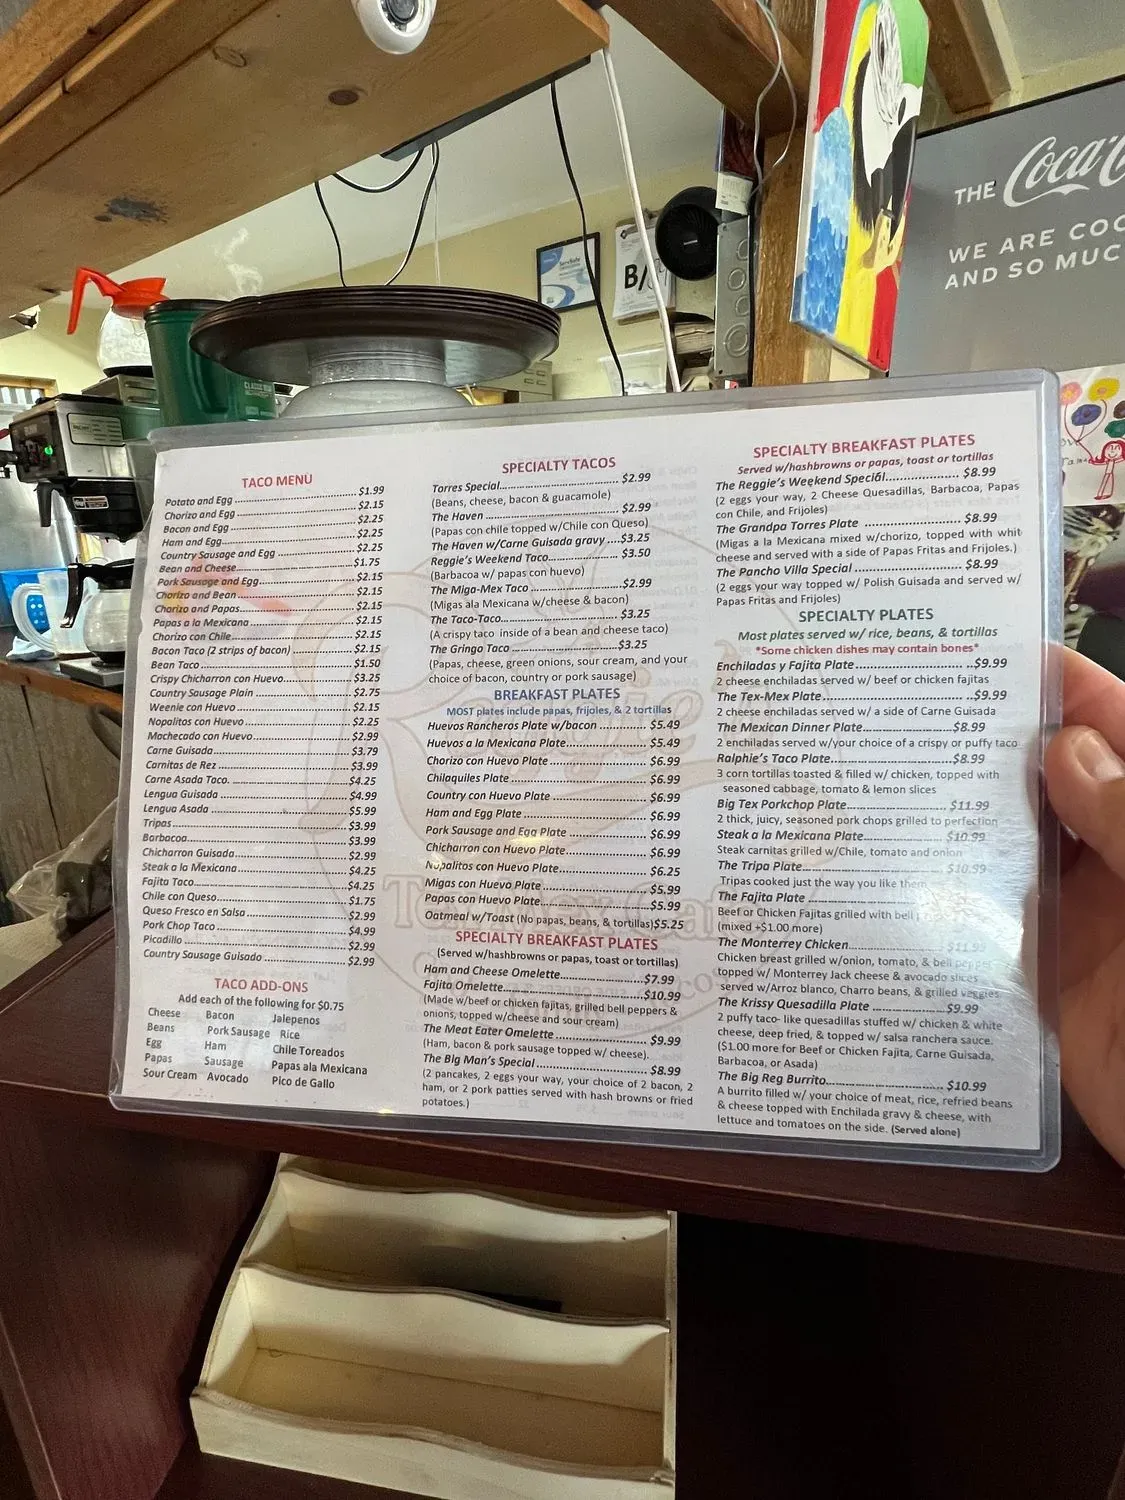 THE Coca-C
WE ARE COO
AND SO MUC
B/
TACO MENU
Potato and Egg $1.99
Chorizo and Egg $2.15
Bacon and Egg $2.25
Ham and Egg $2.25
Country Sausage and Egg $2.25
Bean and Cheese $1.75
Pork Sausage and Egg $2.15
Chorizo and Bean $2.15
Chorizo and Papas $2.15
Papas a la Mexicana $2.15
Chorizo con Chile $2.15
Bacon Taco (2 strips of bacon) $2.15
Bean Taco $1.50
Crispy Chicharron con Huevo $3.25
Country Sausage Plain $2.75
Weenie con Huevo $2.15
Nopalitos con Huevo $2.25
Machecado con Huevo $2.99
Carne Guisada $3.79
Carnitas de Rez $3.99
Carne Asada Taco. $4.25
Lengua Guisada $4.99
Lengua Asada $5.99
Tripas $3.99
Barbacoa $3.99
Chicharron Guisada $2.99
Steak a la Mexicana $4.25
Fajita Taco $4.25
Chile con Queso $1.75
Queso Fresco en Salsa $2.99
Pork Chop Taco $4.99
Picadillo $2.99
Country Sausage Guisado $2.99
TACO ADD-ONS
Add each of the following for $0.75
Cheese Bacon Jalepenos
Beans Pork Sausage Rice
Egg Ham Chile Toreados
Papas Sausage Papas ala Mexicana
Sour Cream Avocado Pico de Gallo
SPECIALTY TACOS
Torres Special $2.99
(Beans, cheese, bacon & guacamole)
The Haven $2.99
(Papas con chile topped w/Chile con Queso)
The Haven w/Carne Guisada gravy $3.25
Reggie's Weekend Taco $3.50
(Barbacoa w/ papas con huevo)
The Miga-Mex Taco $2.99
(Migas ala Mexicana w/cheese & bacon)
The Taco-Taco $3.25
(A crispy taco inside of a bean and cheese taco)
The Gringo Taco $3.25
(Papas, cheese, green onions, sour cream, and your
choice of bacon, country or pork sausage)
BREAKFAST PLATES
MOST plates include papas, frijoles, & 2 tortillas
Huevos Rancheros Plate w/bacon $5.49
Huevos a la Mexicana Plate $5.49
Chorizo con Huevo Plate $6.99
Chilaquiles Plate $6.99
Country con Huevo Plate $6.99
Ham and Egg Plate $6.99
Pork Sausage and Egg Plate $6.99
Chicharron con Huevo Plate $6.99
Nopalitos con Huevo Plate $6.25
Migas con Huevo Plate $5.99
Papas con Huevo Plate $5.99
Oatmeal w/Toast (No papas, beans, & tortillas)$5.25
SPECIALTY BREAKFAST PLATES
(Served w/hashbrowns or papas, toast or tortillas)
Ham and Cheese Omelette $7.99
Fajita Omelette $10.99
(Made w/beef or chicken fajitas, grilled bell peppers &
onions, topped w/cheese and sour cream)
The Meat Eater Omelette $9.99
(Ham, bacon & pork sausage topped w/ cheese).
The Big Man's Special $8.99
(2 pancakes, 2 eggs your way, your choice of 2 bacon, 2
ham, or 2 pork patties served with hash browns or fried
potatoes.)
SPECIALTY BREAKFAST PLATES
Served w/hashbrowns or papas, toast or tortillas
The Reggie's Weekend Special $8.99
(2 eggs your way, 2 Cheese Quesadillas, Barbacoa, Papas
con Chile, and Frijoles)
The Grandpa Torres Plate $8.99
(Migas a la Mexicana mixed w/chorizo, topped with whit
cheese and served with a side of Papas Fritas and Frijoles.)
The Pancho Villa Special $8.99
(2 eggs your way topped w/ Polish Guisada and served w/
Papas Fritas and Frijoles)
SPECIALTY PLATES
Most plates served w/ rice, beans, & tortillas
*Some chicken dishes may contain bones*
Enchiladas y Fajita Plate $9.99
2 cheese enchiladas served w/ beef or chicken fajitas
The Tex-Mex Plate $9.99
2 cheese enchiladas served w/ a side of Carne Guisada
The Mexican Dinner Plate $8.99
2 enchiladas served w/your choice of a crispy or puffy taco
Ralphie's Taco Plate $8.99
3 corn tortillas toasted & filled w/ chicken, topped with
seasoned cabbage, tomato & lemon slices
Big Tex Porkchop Plate $11.99
2 thick, juicy, seasoned pork chops grilled to perfection
Steak a la Mexicana Plate $10.99
Steak carnitas grilled w/Chile, tomato and onion
The Tripa Plate $10.99
Tripas cooked just the way you like them
The Fajita Plate
Beef or Chicken Fajitas grilled with bell
(mixed +$1.00 more)
The Monterrey Chicken $11.99
Chicken breast grilled w/onion, tomato, & bell pepper
topped w/ Monterrey Jack cheese & avocado slices
served w/Arroz blanco, Charro beans, & grilled veggies
The Krissy Quesadilla Plate $9.99
2 puffy taco- like quesadillas stuffed w/ chicken & white
cheese, deep fried, & topped w/ salsa ranchera sauce.
($1.00 more for Beef or Chicken Fajita, Carne Guisada,
Barbacoa, or Asada)
The Big Reg Burrito $10.99
A burrito filled w/ your choice of meat, rice, refried beans
& cheese topped with Enchilada gravy & cheese, with
lettuce and tomatoes on the side. (Served alone)